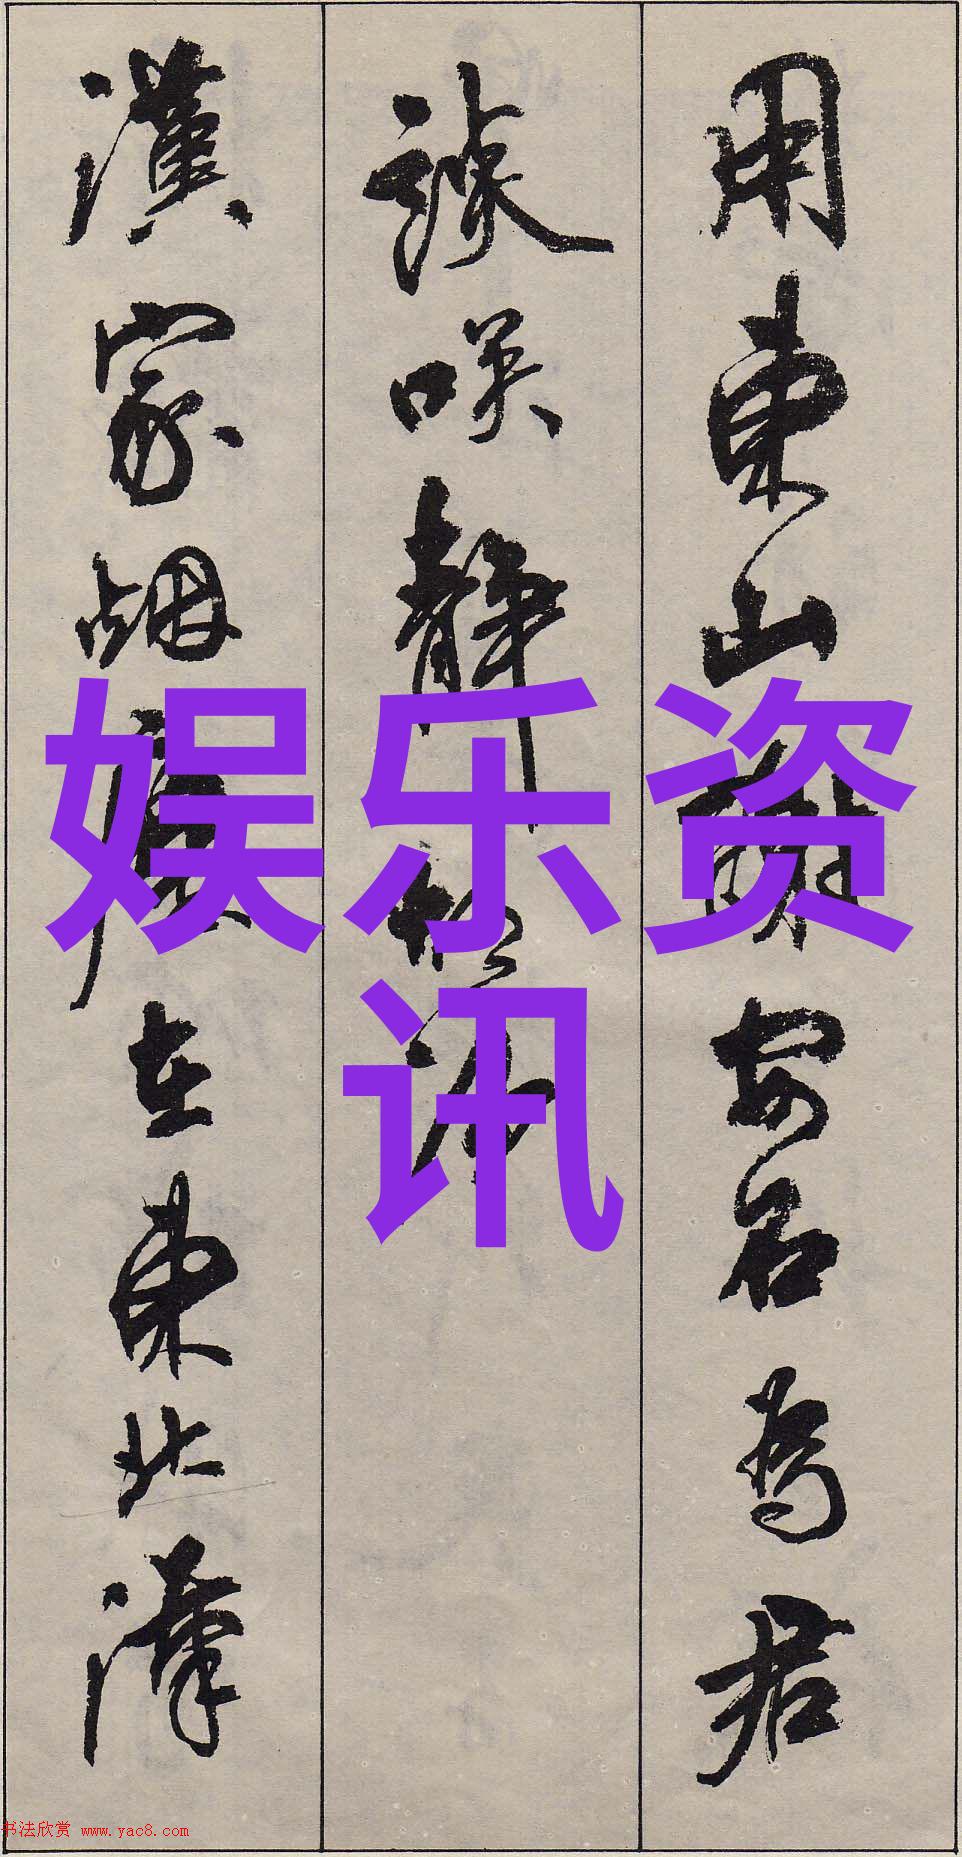 用東山安石為君
談咲靜
漢家烟在東北漢
娱乐资
讯
书法欣赏 www.yac8.com